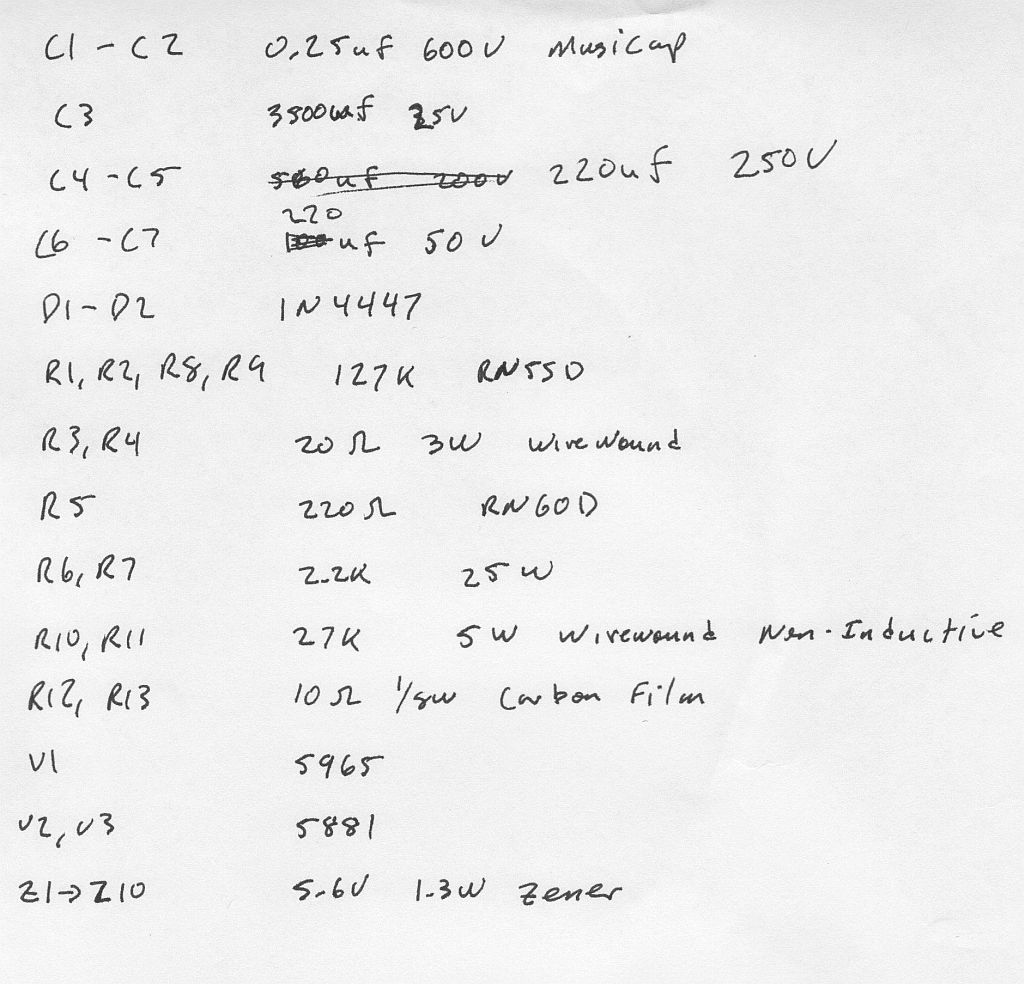 C1 - C2 0.25uf 600V Musicap
C3 3300uf 25V
C4 - C5 560uf 200V 220uf 250V
220
C6 - C7 uf 50V
D1 - D2 1N4447
R1, R2, R8, R9 127K RN55D
R3, R4 20Ω 3W wirewound
R5 220Ω RN60D
R6, R7 2.2K 25W
R10, R11 27K 5W Wirewound Non-Inductive
R12, R13 10Ω 1/8W Carbon Film
V1 5965
V2, V3 5881
Z1→Z10 5.6V 1.3W Zener